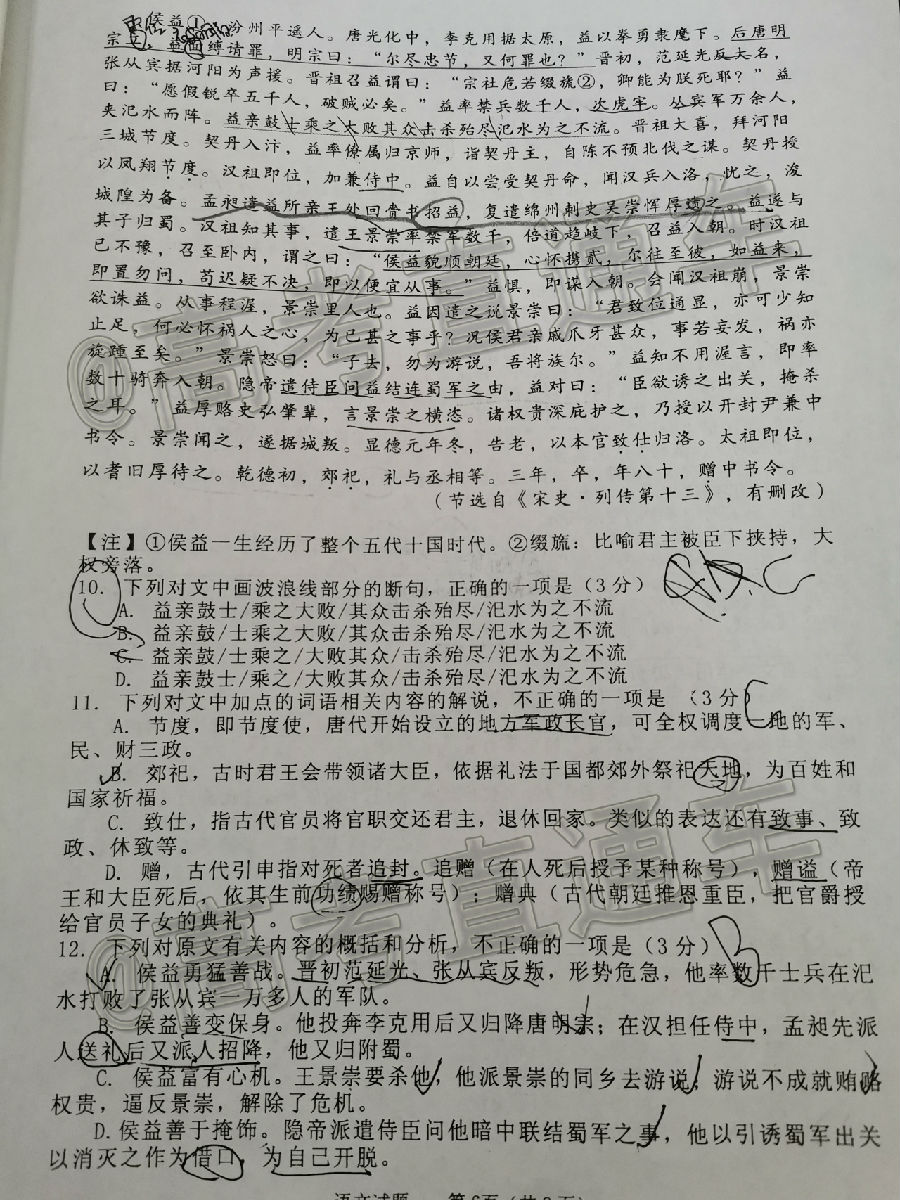 侯益①，汾州平遥人。唐光化中，李克用据太原，益以拳勇隶麾下。后唐明
宗立，益面缚请罪，明宗曰：“尔尽忠节，又何罪也？”晋初，范延光反大名，
张从宾据河阳为声援。晋祖召益谓曰：“宗社危若缀旒②，卿能为朕死耶？”益
曰：“愿假锐卒五千人，破贼必矣。”益率禁兵数千人，次虎牢。从宾军万余人，
夹汜水而阵。益亲鼓士乘之大败其众击杀殆尽汜水为之不流。晋祖大喜，拜河阳
三城节度。契丹入汴，益率僚属归京师，诣契丹主，自陈不预北伐之谋。契丹授
以凤翔节度。汉祖即位，加兼侍中。益自以尝受契丹命，闻汉兵入洛，忧之，浚
城隍为备。孟昶遣益所亲王处回赍书招益，复遣绵州刺史吴崇恽厚遗之。益遂与
其子归蜀。汉祖知其事，遣王景崇率禁军数千，倍道趋岐下，召益入朝。时汉祖
已不豫，召至卧内，谓之曰：“侯益貌顺朝廷，心怀携贰，尔往至彼，如益来，
即置勿问，苟迟疑不决，即以便宜从事。”益惧，即谋入朝。会闻汉祖崩，景崇
欲诛益。从事程渥，景崇里人也。益因遣之说景崇曰：“君致位通显，亦可少知
止足，何必怀祸人之心，为已甚之事乎？况侯君亲戚爪牙甚众，事若妄发，祸亦
旋踵至矣。”景崇怒曰：“子去，勿为游说，吾将族尔。”益知不用渥言，即率
数十骑奔入朝。隐帝遣侍臣问益结连蜀军之由，益对曰：“臣欲诱之出关，掩杀
之耳。”益厚赂史弘肇辈，言景崇之横恣。诸权贵深庇护之，乃授以开封尹兼中
书令。景崇闻之，遂据城叛。显德元年冬，告老，以本官致仕归洛。太祖即位，
以耆旧厚待之。乾德初，郊祀，礼与丞相等。三年，卒，年八十，赠中书令。
（节选自《宋史·列传第十三》，有删改）
【注】①侯益一生经历了整个五代十国时代。②缀旒：比喻君主被臣下挟持，大
权旁落。
10. 下列对文中画波浪线部分的断句，正确的一项是（3分）
A. 益亲鼓士/乘之大败/其众击杀殆尽/汜水为之不流
B. 益亲鼓/士乘之大败/其众击杀殆尽/汜水为之不流
C. 益亲鼓/士乘之/大败其众/击杀殆尽/汜水为之不流
D. 益亲鼓士/乘之/大败其众/击杀殆尽/汜水为之不流
11. 下列对文中加点的词语相关内容的解说，不正确的一项是（3分）
A. 节度，即节度使，唐代开始设立的地方军政长官，可全权调度 地的军、
民、财三政。
B. 郊祀，古时君王会带领诸大臣，依据礼法于国都郊外祭祀天地，为百姓和
国家祈福。
C. 致仕，指古代官员将官职交还君主，退休回家。类似的表达还有致事、致
政、休致等。
D. 赠，古代引申指对死者追封。追赠（在人死后授予某种称号），赠谥（帝
王和大臣死后，依其生前功绩赐赠称号）；赠典（古代朝廷推恩重臣，把官爵授
给官员子女的典礼）
12. 下列对原文有关内容的概括和分析，不正确的一项是（3分）
A. 侯益勇猛善战。晋初范延光、张从宾反叛，形势危急，他率数千士兵在汜
水打败了张从宾一万多人的军队。
B. 侯益善变保身。他投奔李克用后又归降唐明宗；在汉担任侍中，孟昶先派
人送礼后又派人招降，他又归附蜀。
C. 侯益富有心机。王景崇要杀他，他派景崇的同乡去游说，游说不成就贿赂
权贵，逼反景崇，解除了危机。
D. 侯益善于掩饰。隐帝派遣侍臣问他暗中联结蜀军之事，他以引诱蜀军出关
以消灭之作为借口，为自己开脱。